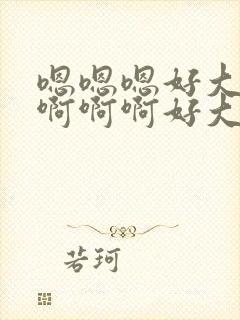 嗯嗯嗯好大
啊啊啊好大
若珂